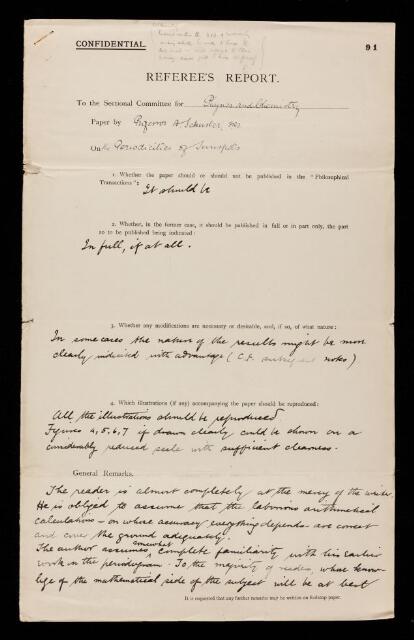 CONFIDENTIAL.
91
REFEREE'S REPORT.
To the Sectional Committee for Physics and Chemistry
Paper by Professor A Schuster, FRS
On the Periodicities of Sunspots
1. Whether the paper should or should not be published in the "Philosophical
Transactions":
It should be
2. Whether, in the former case, it should be published in full or in part only, the part
so to be published being indicated:
In full, if at all.
3. Whether any modifications are necessary or desirable, and, if so, of what nature:
In some cases the nature of the results might be more
clearly indicated with advantage (C.F. notes)
4. Which illustrations (if any) accompanying the paper should be reproduced:
All the illustrations should be reproduced
Figures 4, 5, 6, 7 if drawn clearly could be shown on a
considerably reduced scale with sufficient clearness.
General Remarks.
The reader is almost completely at the mercy of the writer.
He is obliged to assume that the laborious arithmetical
calculations – on whose accuracy everything depends – are correct
and cover the ground adequately.
somewhat
The author assumes complete familiarity with his earlier
work on the periodogram. To the majority of readers, whose know-
ledge of the mathematical side of the subject will be at best
It is requested that any further remarks may be written on foolscap paper.